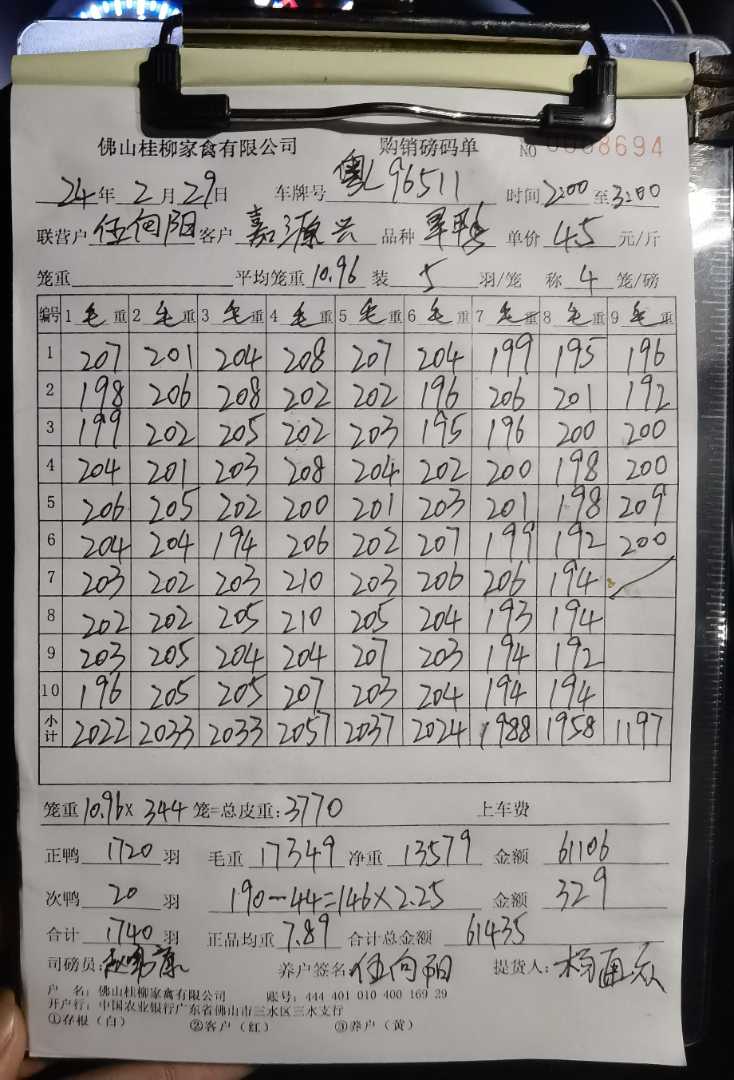 佛山桂柳家禽有限公司 购销磅码单 NO 0008694
24年2月29日 车牌号 粤L96511 时间2:00至3:00
联营户 伍向阳 客户 嘉源兴 品种 旱鸭 单价 4.5 元/斤
笼重 平均笼重10.96 装 5 羽/笼 称 4 笼/磅
编号 1毛重 2毛重 3毛重 4毛重 5毛重 6毛重 7毛重 8毛重 9毛重
1 207 201 204 208 207 204 199 195 196
2 198 206 208 202 202 196 206 201 192
3 199 202 205 202 203 195 196 200 200
4 204 201 203 208 204 202 200 198 200
5 206 205 202 200 201 203 201 198 209
6 204 204 194 206 202 207 199 192 200
7 203 202 203 210 203 206 206 194
8 202 202 205 210 205 204 193 194
9 203 205 204 204 207 203 194 192
10 196 205 205 207 203 204 194 194
小计 2022 2033 2033 2057 2037 2024 1988 1958 1197
笼重10.96×344笼=总皮重:3770 上车费
正鸭 1720 羽 毛重 17349 净重 13579 金额 61106
次鸭 20 羽 190-44=146×2.25 金额 329
合计 1740 羽 正品均重 7.89 合计总金额 61435
司磅员: 养户签名 伍向阳 提货人:
户 名:佛山桂柳家禽有限公司 账号:444 401 010 400 169 29
开户行:中国农业银行广东省佛山市三水区三水支行
①存根(白) ②客户(红) ③养户(黄)